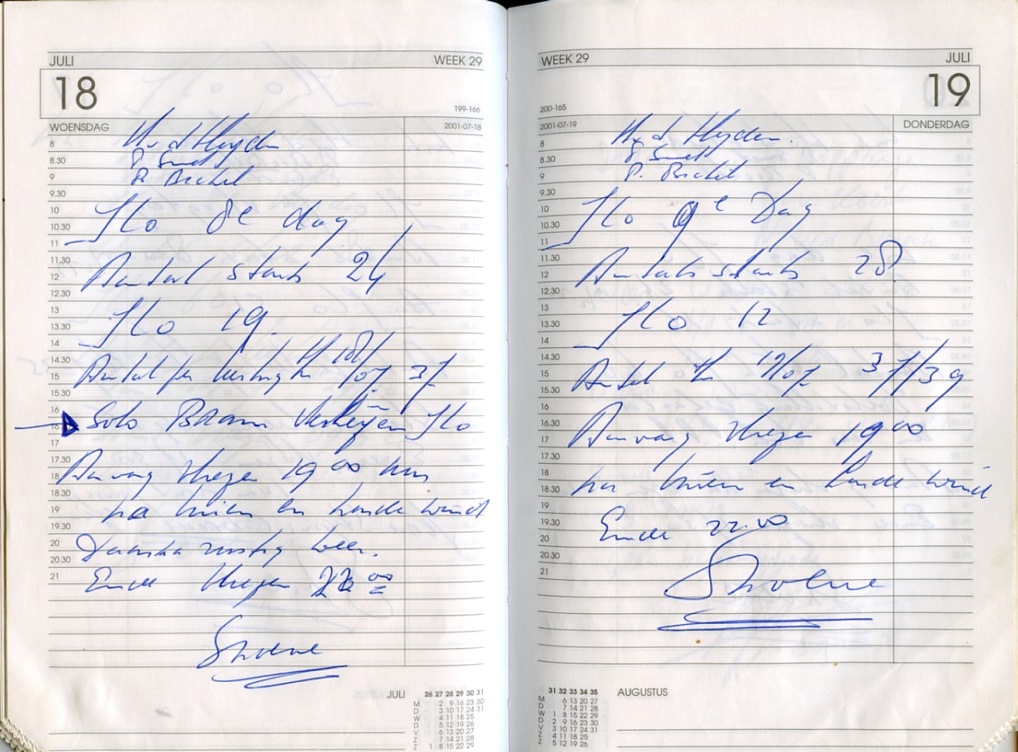 JULI WEEK 29
18
199-166
WOENSDAG 2001-07-18
8 H. v d Heyden
8.30 P. Smet
9 P. Bechel
9.30
10 Ilo 8e dag
10.30
11
11.30 Aantal starts 24
12
12.30
13 Ilo 19.
13.30
14
14.30
15 Aantal 37
15.30
16 Solo Bram Verheijen Ilo
17
17.30
18 Aanvang vliegen 19 00 uur
18.30
19 na buien en harde wind
19.30
20 Daarna rustig weer.
20.30
21 Einde vliegen 22 00
JULI 26 27 28 29 30 31
M 2 9 16 23 30
D 3 10 17 24 31
W 4 11 18 25
D 5 12 19 26
V 6 13 20 27
Z 7 14 21 28
Z 1 8 15 22 29
WEEK 29 JULI
19
200-165
2001-07-19 DONDERDAG
8 H. v d Heyden.
8.30 P. Smet
9 P. Bechel
9.30
10 Ilo 9e Dag
10.30
11
11.30 Aantal starts 28
12
12.30
13 Ilo 12
13.30
14
14.30
15 Aantal 37/39
15.30
16
17 Aanvang vliegen 19 00
17.30
18
18.30 na buien en harde wind
19
19.30 Einde 22.00
20
20.30
21
31 32 33 34 35 AUGUSTUS
M 6 13 20 27
D 7 14 21 28
W 1 8 15 22 29
D 2 9 16 23 30
V 3 10 17 24 31
Z 4 11 18 25
Z 5 12 19 26